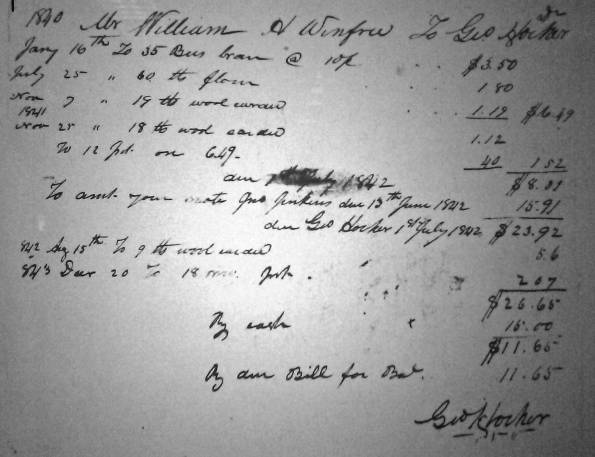 1840 Mr William H Winfree To Geo Hocker Dr
Jany 16th To 35 Bus bran @ 10¢ $3.50
July 25 " 60 lb flour 1.80
Nov 7 " 19 lb wool carded 1.19 $6.49
1841
Nov 25 " 18 lb wool carded 1.12
To 12 pct. on 6.49. 40 1.52
due July 1842 $8.01
To amt. your note Geo Jenkins due 13th June 1842 15.91
due Geo Hocker 1st July 1842 $23.92
1842 Aug 15th To 9 lb wool carded 56
1843 Decr 20 To 18 mo. 2.07
$26.65
By cash 15.00
$11.65
By due Bill for Bal. 11.65
Geo Hocker